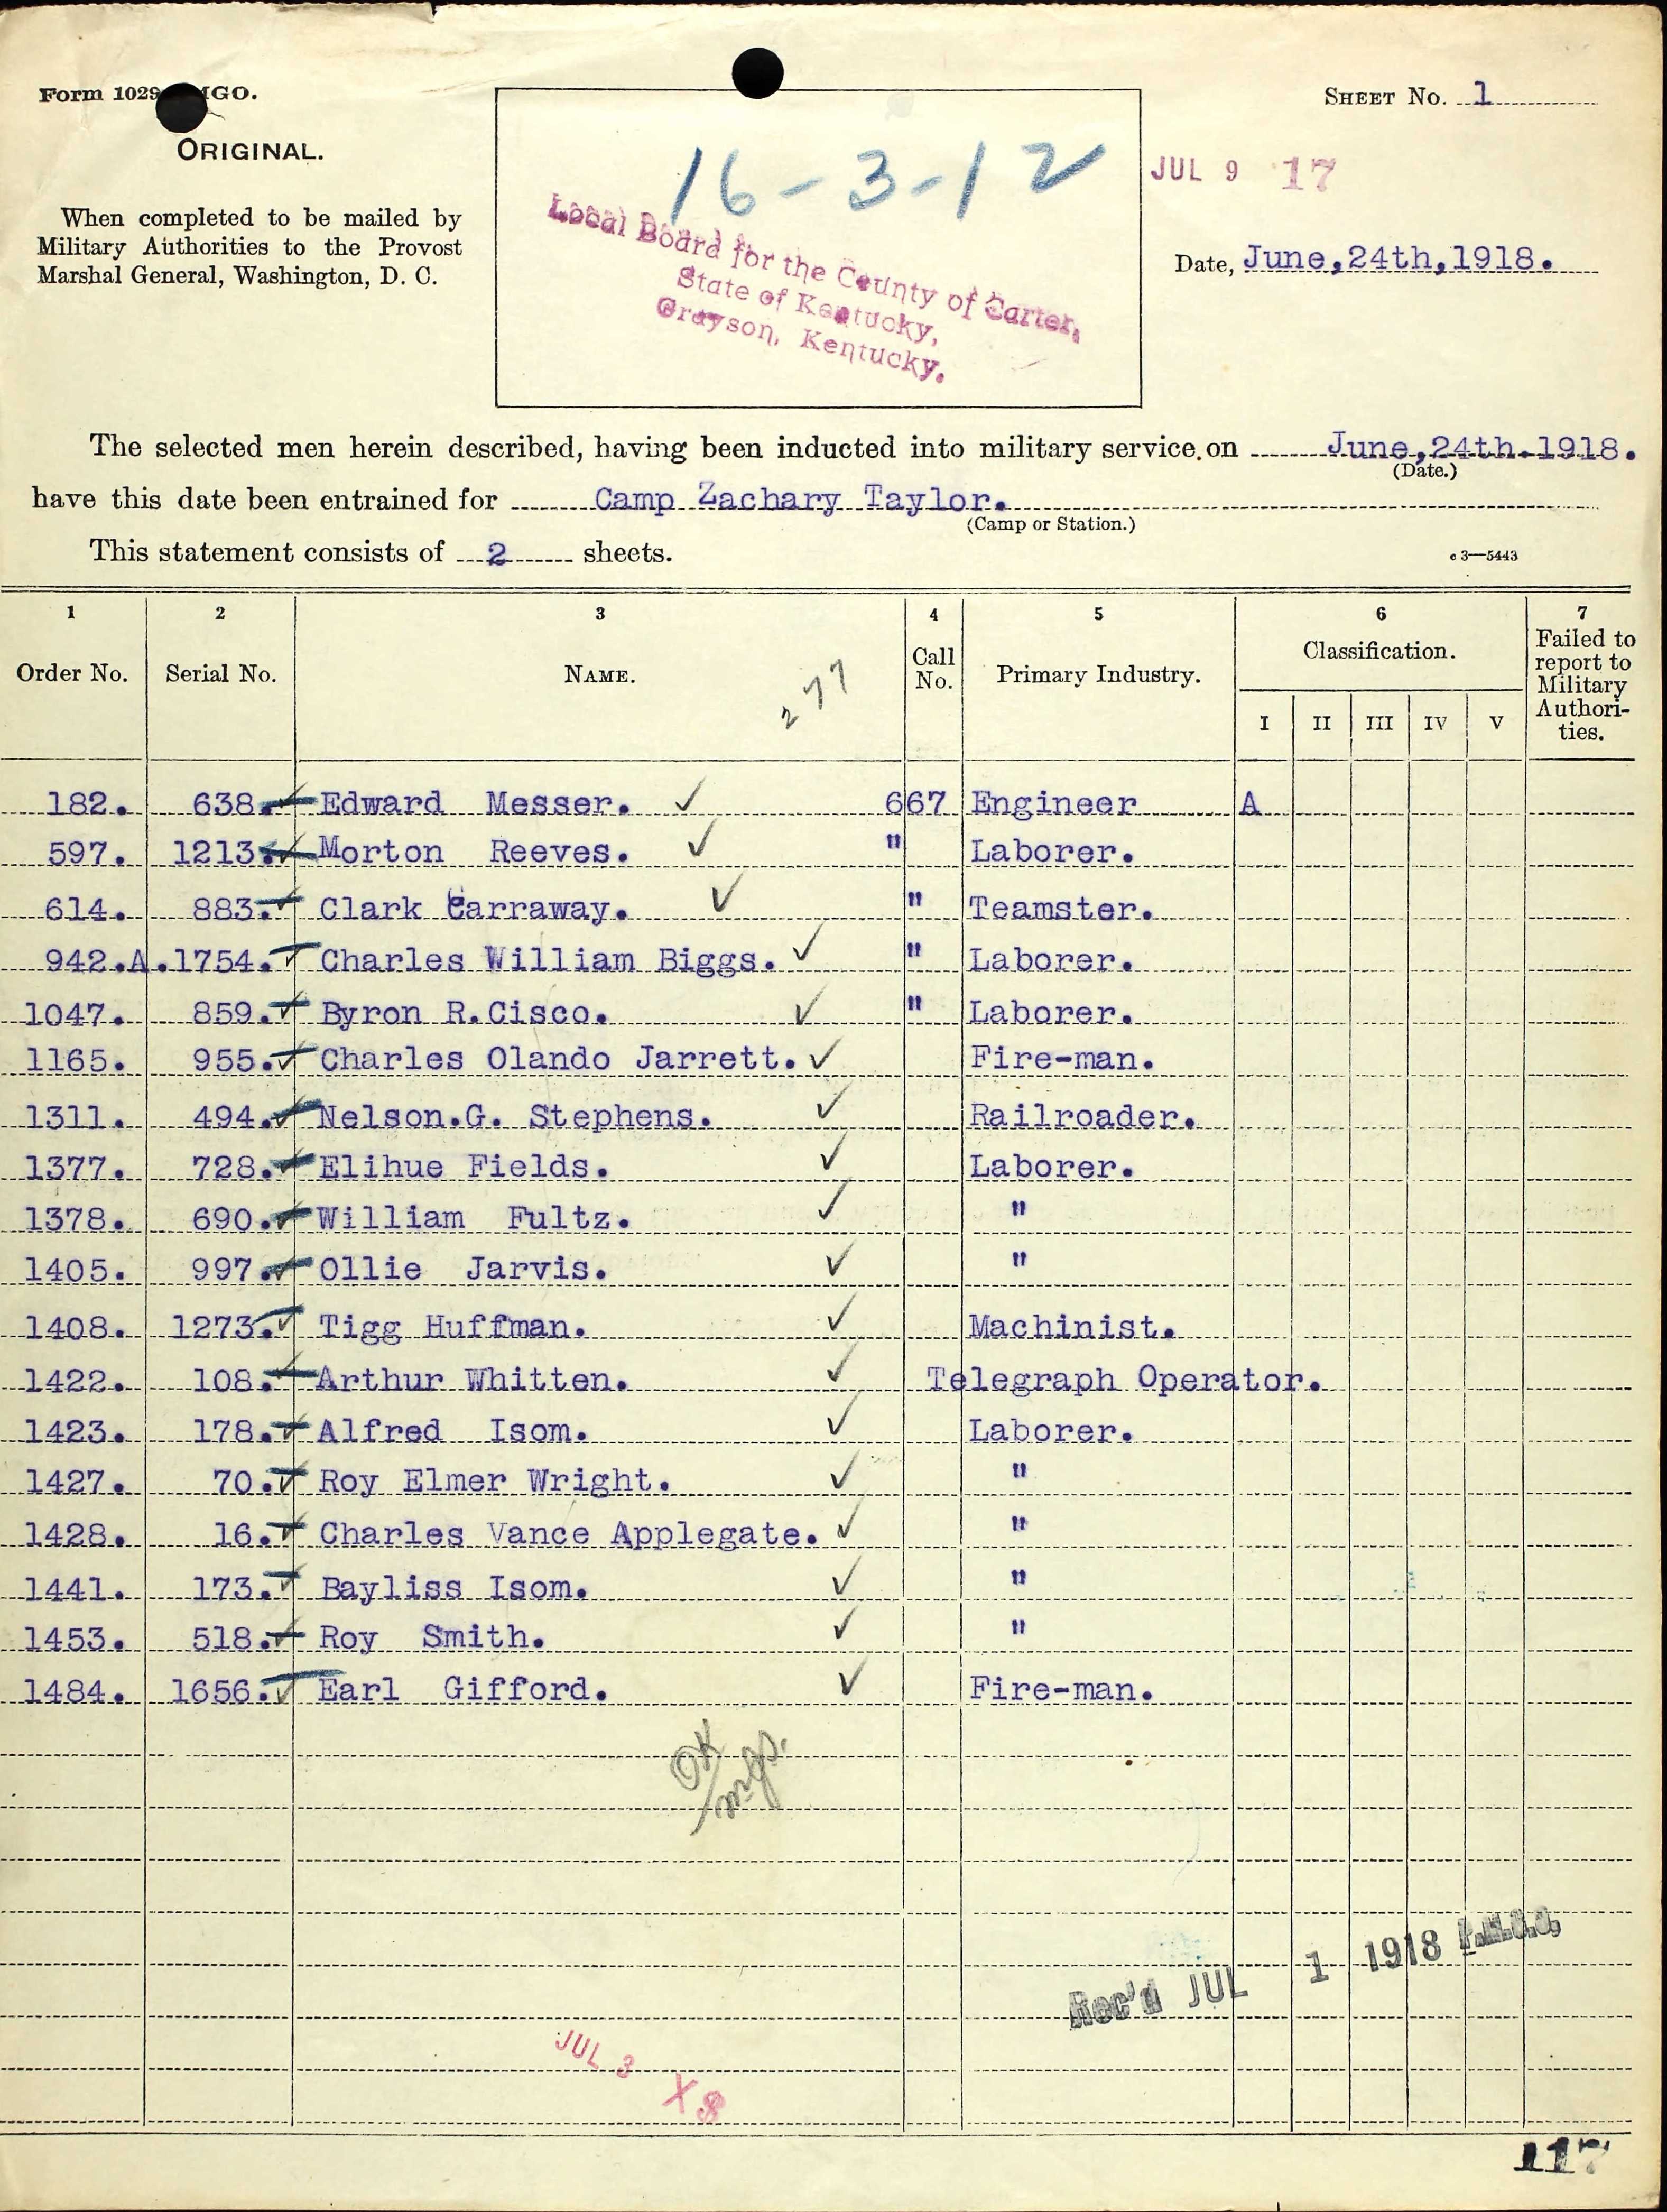 Form 1029 MGO.
ORIGINAL.
When completed to be mailed by
Military Authorities to the Provost
Marshal General, Washington, D. C.
16-3-12
Local Board for the County of Carter,
State of Kentucky,
Grayson, Kentucky.
SHEET No. 1
JUL 9 17
Date, June,24th,1918.
The selected men herein described, having been inducted into military service on June,24th.1918.
(Date.)
have this date been entrained for Camp Zachary Taylor.
(Camp or Station.)
This statement consists of 2 sheets.
c 3—5443
1 2 3 4 5 6 7
Order No. Serial No. NAME. Call No. Primary Industry. Classification. Failed to report to Military Authori-ties.
277
I II III IV V
182. 638. Edward Messer. ✓ 667 Engineer A
597. 1213. Morton Reeves. ✓ " Laborer.
614. 883. Clark Carraway. ✓ " Teamster.
942.A. 1754. Charles William Biggs. ✓ " Laborer.
1047. 859. Byron R.Cisco. ✓ " Laborer.
1165. 955. Charles Olando Jarrett. ✓ Fire-man.
1311. 494. Nelson.G. Stephens. ✓ Railroader.
1377. 728. Elihue Fields. ✓ Laborer.
1378. 690. William Fultz. ✓ "
1405. 997. Ollie Jarvis. ✓ "
1408. 1273. Tigg Huffman. ✓ Machinist.
1422. 108. Arthur Whitten. ✓ Telegraph Operator.
1423. 178. Alfred Isom. ✓ Laborer.
1427. 70. Roy Elmer Wright. ✓ "
1428. 16. Charles Vance Applegate. ✓ "
1441. 173. Bayliss Isom. ✓ "
1453. 518. Roy Smith. ✓ "
1484. 1656. Earl Gifford. ✓ Fire-man.
OK
Rec'd JUL 1 1918 P.M.G.O.
JUL 3
X 8
117